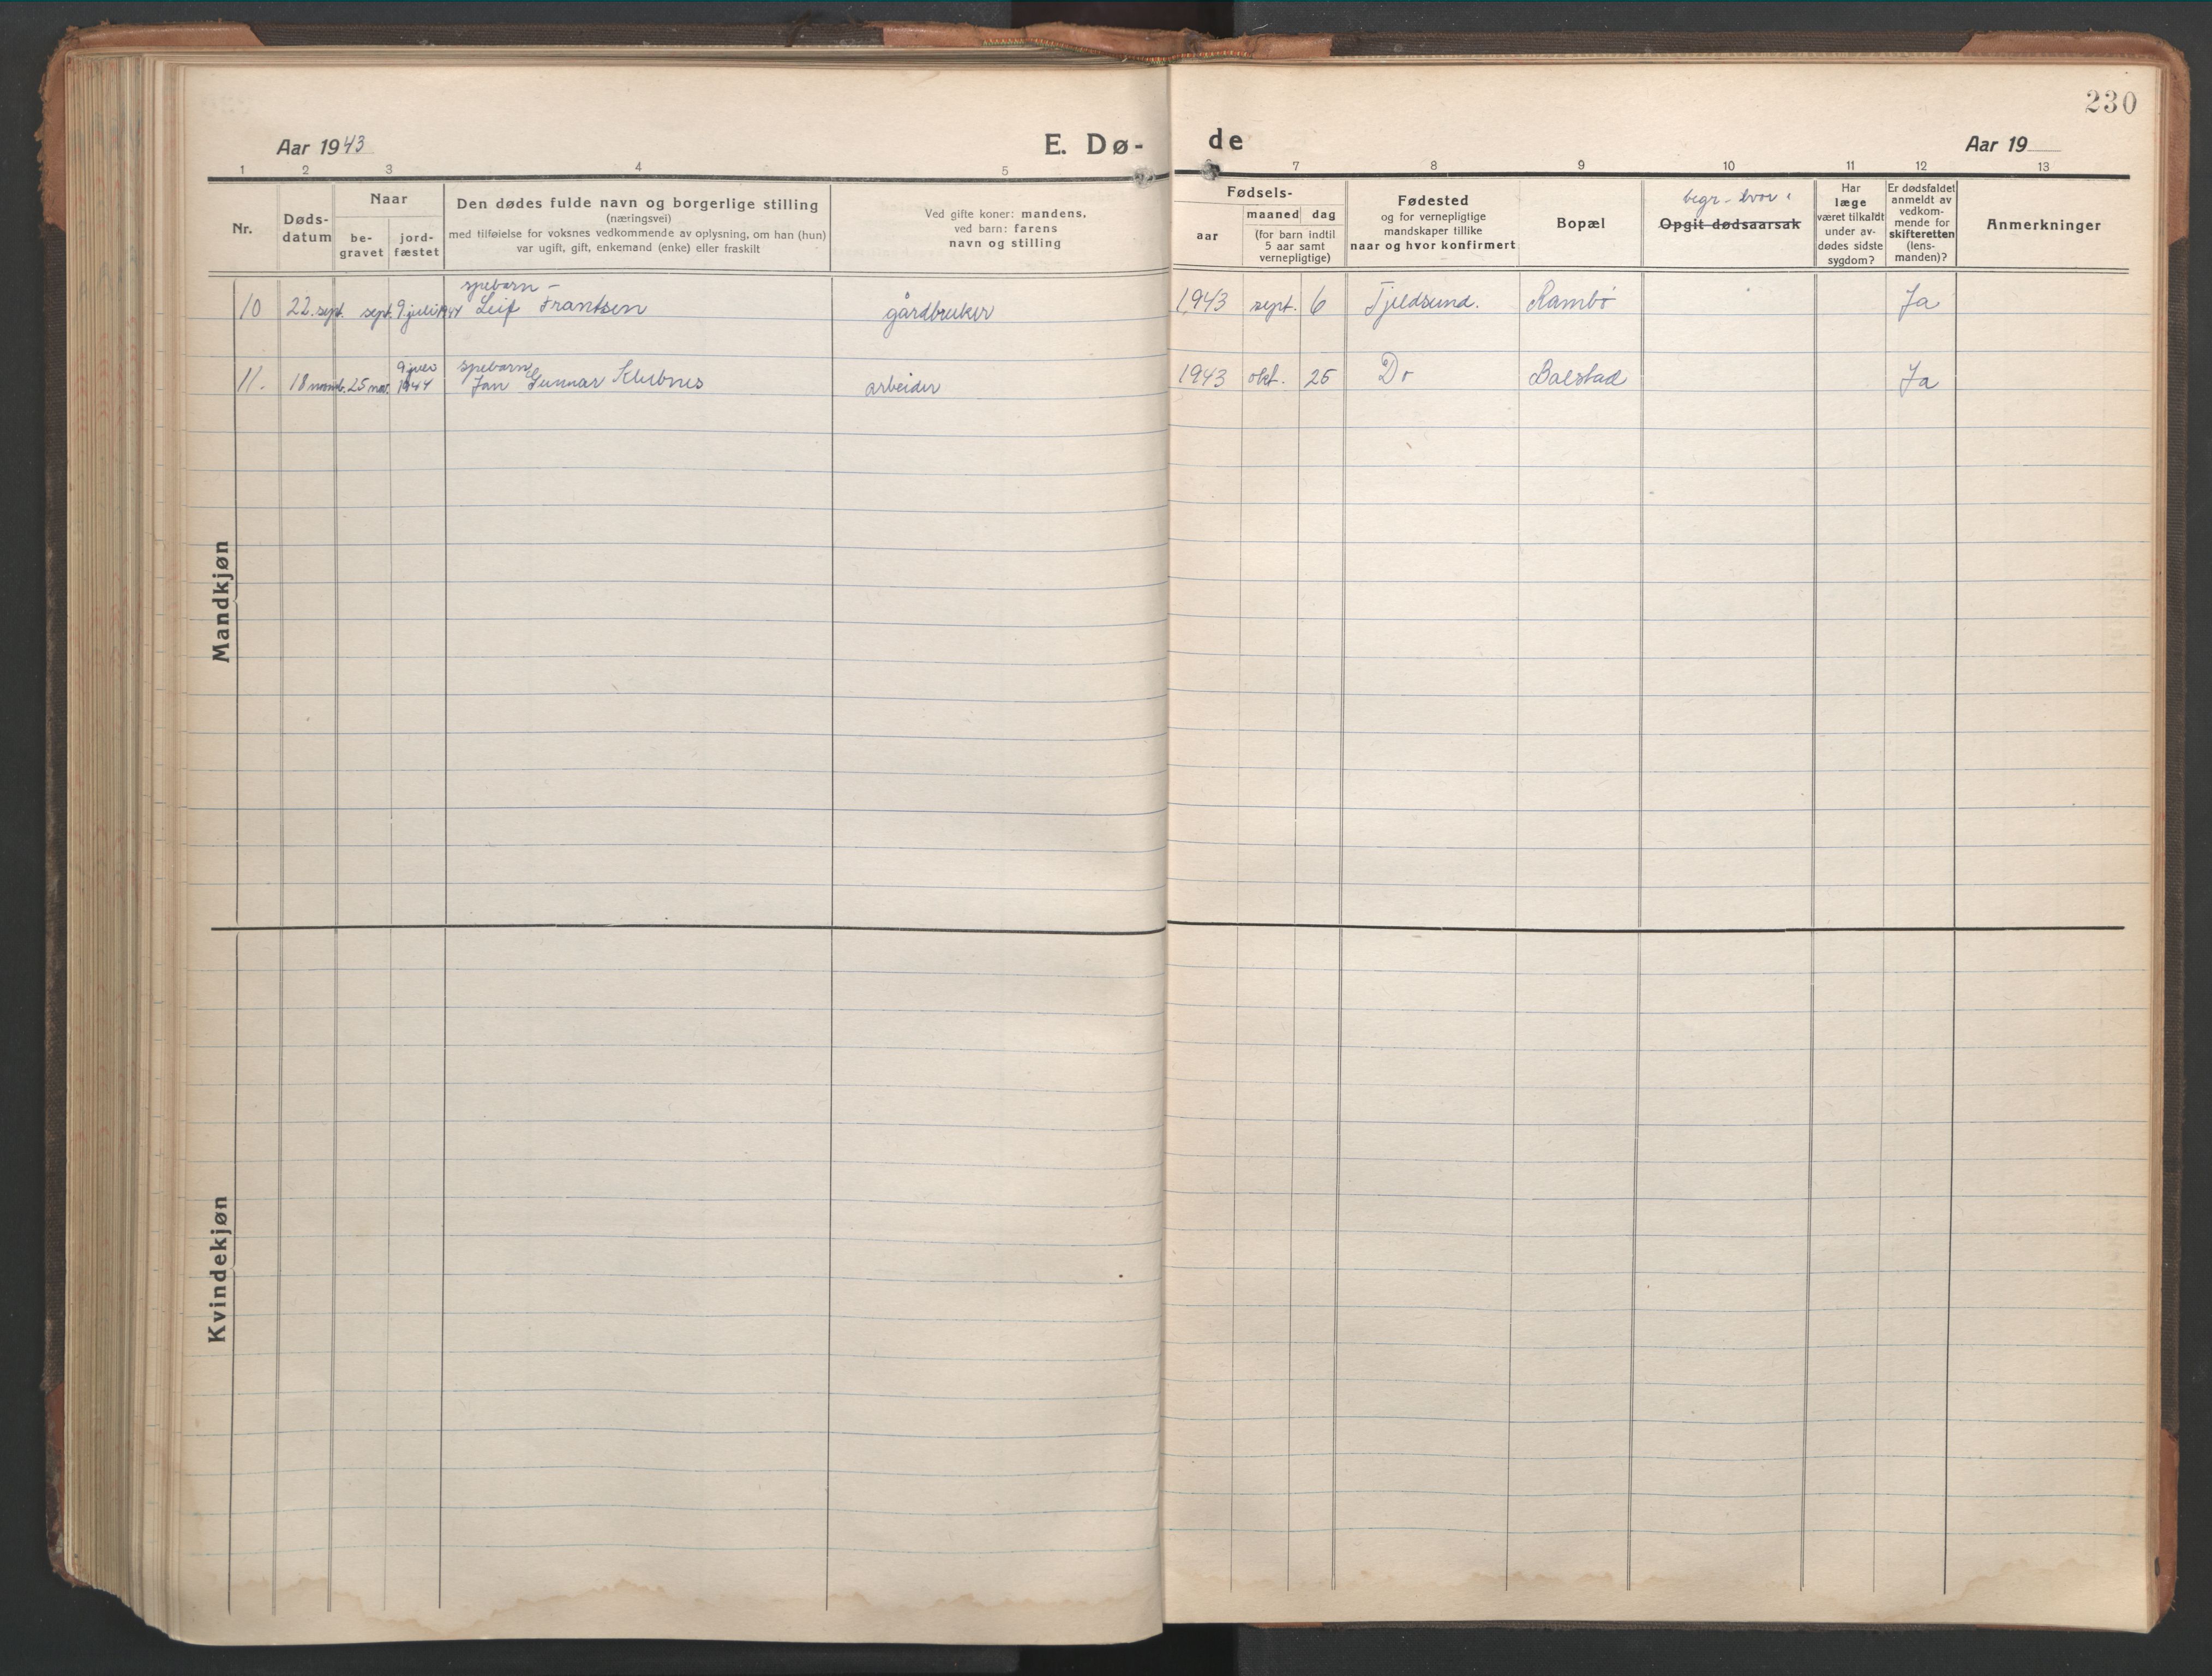 230
Aar 1943
E. Dø-
de
Aar 19
1 2 3 4 5 6 7 8 9 10 11 12 13
Nr.
Døds-
datum
Naar
be-
gravet
jord-
fæstet
Den dødes fulde navn og borgerlige stilling
(næringsvei)
med tilføielse for voksnes vedkommende av oplysning, om han (hun)
var ugift, gift, enkemand (enke) eller fraskilt
Ved gifte koner: mandens,
ved barn: farens
navn og stilling
Fødsels-
aar
maaned dag
(for barn indtil
5 aar samt
vernepligtige)
Fødested
og for vernepligtige
mandskaper tillike
naar og hvor konfirmert
Bopæl
begr. hvor
Opgit dødsaarsak
Har
læge
været tilkaldt
under av-
dødes sidste
sygdom?
Er dødsfaldet
anmeldt av
vedkom-
mende for
skifteretten
(lens-
manden)?
Anmerkninger
spebarn -
10 22. sept. sept. 9 juli 1944 Leif Frantsen gårdbruker 1943 sept. 6 Tjeldsund. Rambø Ja
9 juli spebarn
11. 18 novb. 25 nov. 1944 Jan Gunnar Klubnes arbeider 1943 okt. 25 Do Balstad Ja
Mandkjøn
Kvindekjøn